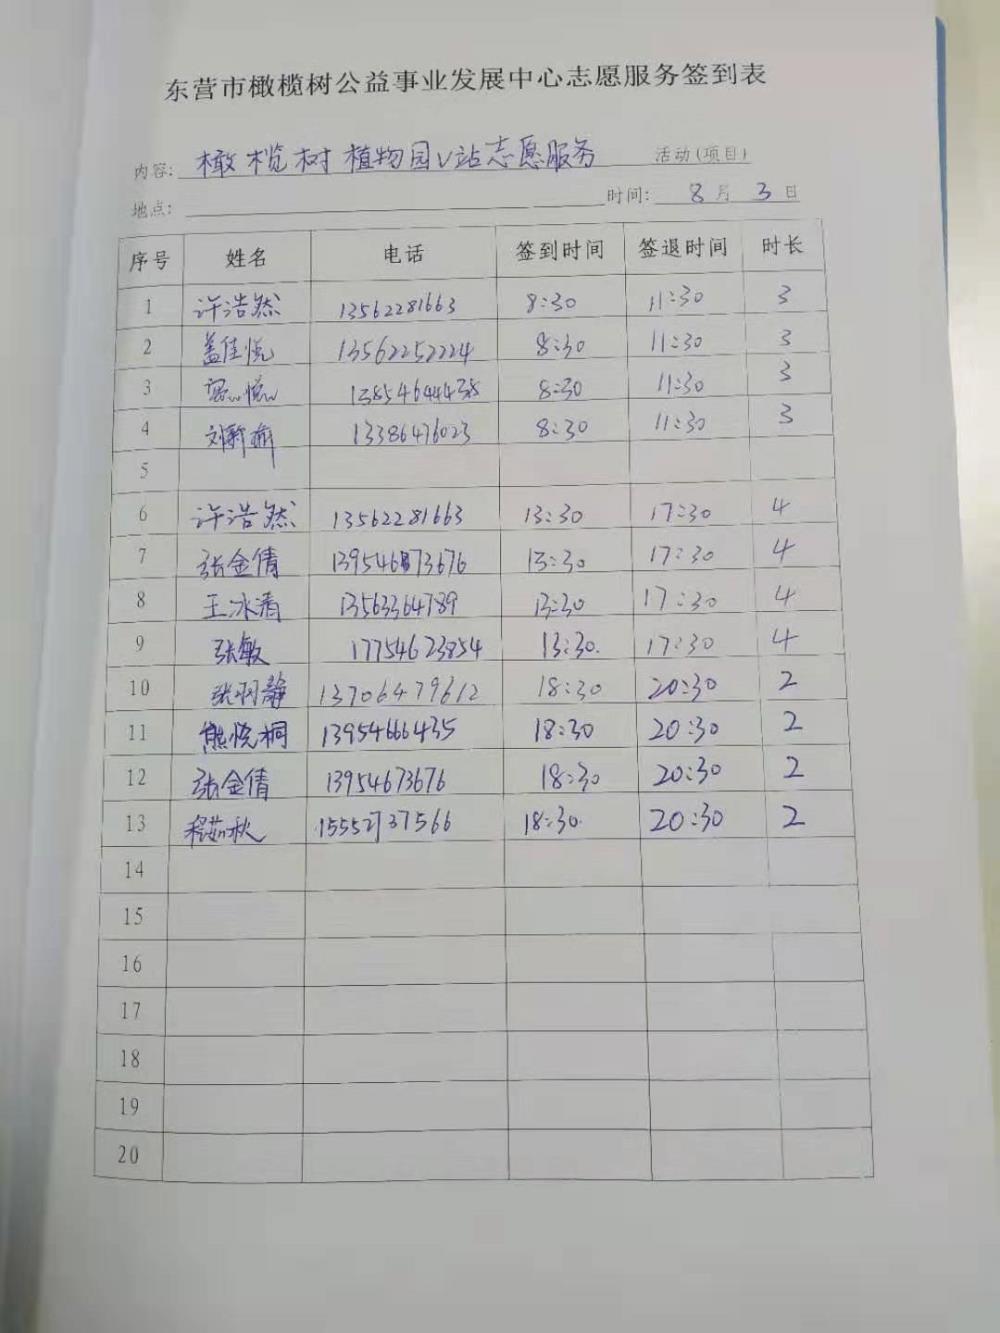 东营市橄榄树公益事业发展中心志愿服务签到表
内容: 橄榄树植物园V站志愿服务 活动(项目)
地点: 时间: 8月3日
序号 姓名 电话 签到时间 签退时间 时长
1 许浩然 13562281663 8:30 11:30 3
2 盖佳悦 13562252224 8:30 11:30 3
3 13854644438 8:30 11:30 3
4 刘 13386476023 8:30 11:30 3
5
6 许浩然 13562281663 13:30 17:30 4
7 张金倩 13954673676 13:30 17:30 4
8 王冰清 13563364789 13:30 17:30 4
9 张敏 17754623854 13:30. 17:30 4
10 张羽静 13706479612 18:30 20:30 2
11 熊悦桐 13954666435 18:30 20:30 2
12 张金倩 13954673676 18:30 20:30 2
13 程茹秋 15552737566 18:30. 20:30 2
14
15
16
17
18
19
20